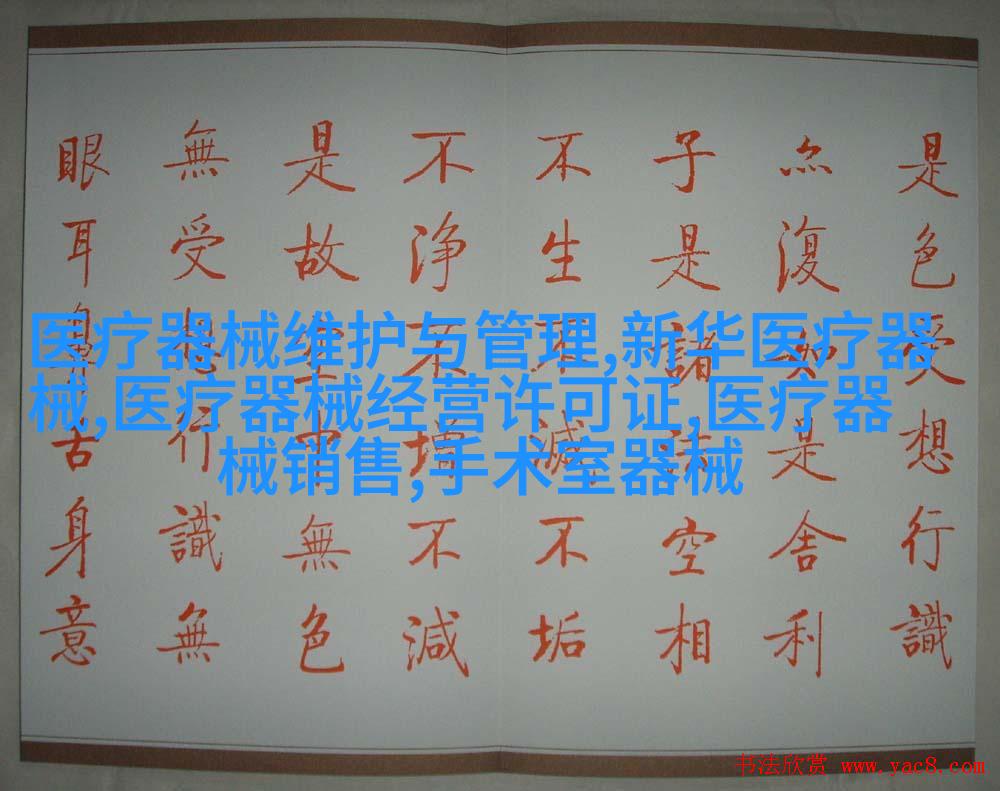 是色受想行識
亦復如是舍利
子是諸法空相
不生不滅不垢
不浄不增不減
是故空中無色
無受想行識無
眼耳鼻舌身意
医疗器械维护与管理,新华医疗器
械,医疗器械经营许可证,医疗器
械销售,手术室器械
书法欣赏 www.yac8.com